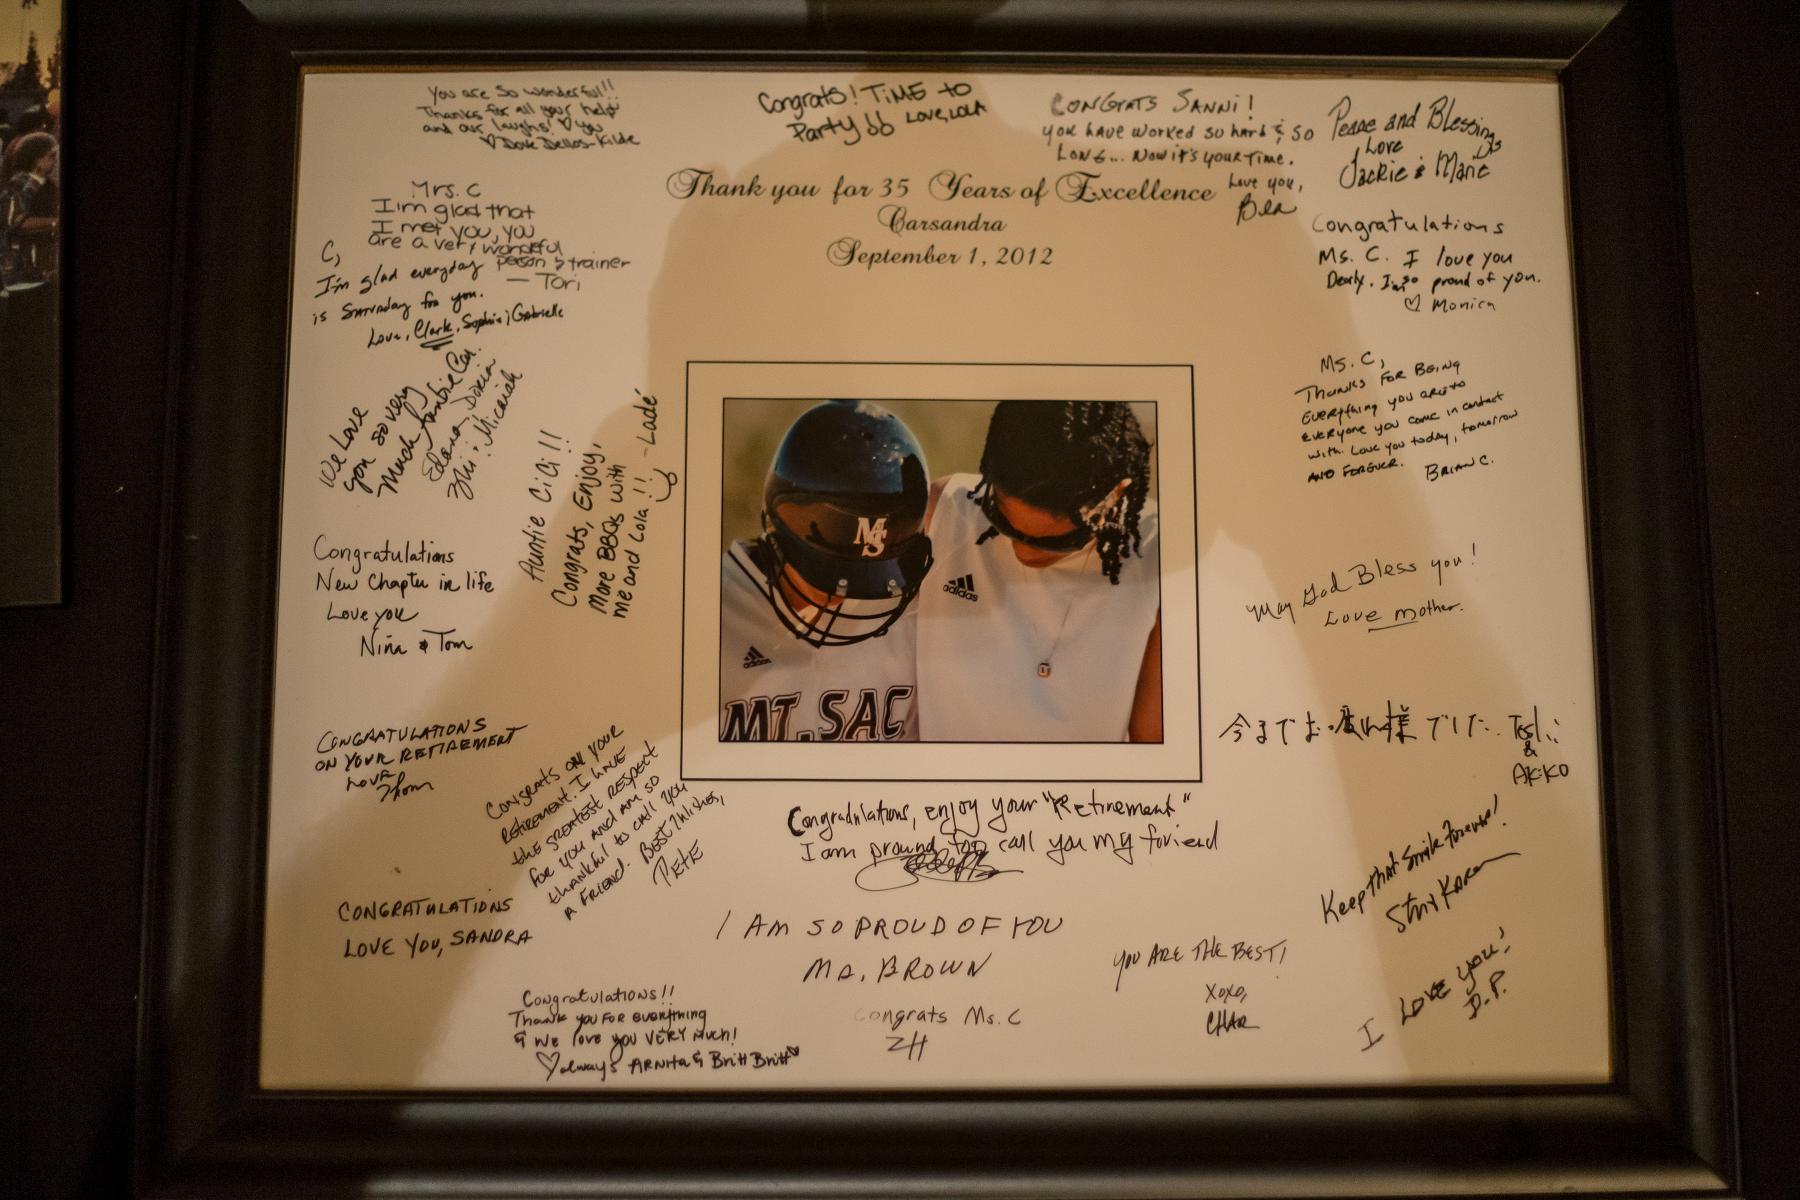 You are so wonderful!!
Thanks for all your help
and our laughs! ♡ you
♡ Dave Dellos-Kilde
Congrats! TIME to
Party Love, LOLA
CONGRATS SANNI!
you have worked so hard & so
LONG... Now it's your time.
Love you,
Bea
Peace and Blessings
Love
Jackie & Marie
Thank you for 35 Years of Excellence
Carsandra
September 1, 2012
Mrs. C
I'm glad that
I met you, you
are a very wonderful
person & trainer
— Tori
C,
I'm glad everyday
is Saturday for you.
Love, Clark, Sophie, Gabrielle
Congratulations
Ms. C. I love you
Dearly. I'm so proud of you.
♡ Monica
We Love
you so very
Much
Ms. C,
Thanks for Being
Everything you are to
everyone you come in contact
with. Love you today, tomorrow
AND FOREVER. BRIAN C.
Auntie CiCi!!
Congrats, Enjoy,
More BBQs with
me and Lola!! - Ladé
MS
adidas
adidas
MT. SAC
Congratulations
New Chapter in life
Love you
Niña & Tom
May God Bless you!
Love mother.
今までお疲れ様でした.
&
AKIKO
CONGRATULATIONS
ON YOUR RETIREMENT
LOVE
Thom
CONGRATS ON YOUR
RETIREMENT. I HAVE
the GREATEST RESPECT
FOR YOU AND AM SO
thankful to call you
A FRIEND. Best Wishes,
PETE
Congradulations, enjoy your "Retirement"
I am pround too call you my friend
Keep that smile forever!
CONGRATULATIONS
LOVE YOU, SANDRA
I AM SO PROUD OF YOU
MR. BROWN
YOU ARE THE BEST!
XOXO,
CHAR
I LOVE YOU!
D.P.
Congratulations!!
Thank you FOR everything
& WE love you VERY MUCH!
♡ always ARNITA & Britt Britt ♡
Congrats Ms. C
ZH